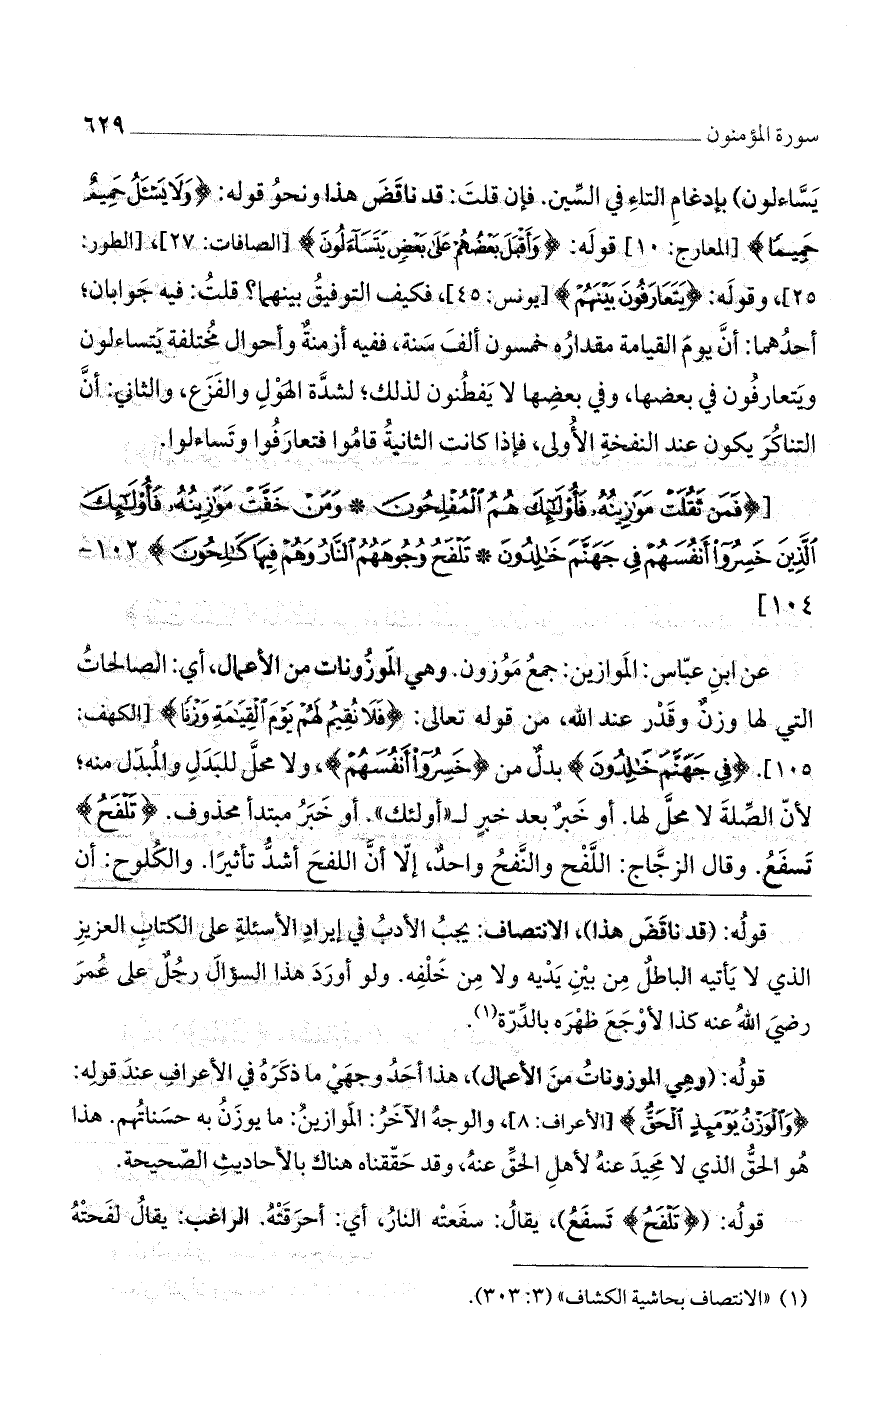 سورة المؤمنون ٦٢٩
يَسَّاءلون) بإدغامِ التاءِ في السِّين. فإن قلتَ: قد ناقَضَ هذا ونحوُ قوله: ﴿وَلَا يَسْـَٔلُ حَمِيمٌ
حَمِيمًا﴾ [المعارج: ١٠] قولَه: ﴿وَأَقْبَلَ بَعْضُهُمْ عَلَىٰ بَعْضٍ يَتَسَآءَلُونَ﴾ [الصافات: ٢٧]، [الطور:
٢٥]، وقولَه: ﴿يَتَعَارَفُونَ بَيْنَهُمْ﴾ [يونس: ٤٥]، فكيف التوفيقُ بينهما؟ قلتُ: فيه جَوابان؛
أحدُهما: أنَّ يومَ القيامة مقدارُه خمسون ألفَ سَنة، ففيه أزمنةٌ وأحوال مُختلفة يَتساءلون
ويَتعارفُون في بعضها، وفي بعضِها لا يَفطُنون لذلك؛ لشدَّة الهَوْلِ والفَزَع، والثاني: أنَّ
التناكُرَ يكون عند النفخةِ الأُولى، فإذا كانت الثانيةُ قامُوا فتعارَفُوا وتَساءلوا.
[﴿فَمَن ثَقُلَتْ مَوَٰزِينُهُۥ فَأُو۟لَٰٓئِكَ هُمُ ٱلْمُفْلِحُونَ * وَمَنْ خَفَّتْ مَوَٰزِينُهُۥ فَأُو۟لَٰٓئِكَ
ٱلَّذِينَ خَسِرُوٓا۟ أَنفُسَهُمْ فِى جَهَنَّمَ خَٰلِدُونَ * تَلْفَحُ وُجُوهَهُمُ ٱلنَّارُ وَهُمْ فِيهَا كَٰلِحُونَ﴾ ١٠٢-
١٠٤]
عن ابنِ عبّاس: المَوازين: جمعُ مَوْزون. وهي المَوزُونات من الأعمال، أي: الصالحاتُ
التي لها وزنٌ وقَدْر عند الله، من قوله تعالى: ﴿فَلَا نُقِيمُ لَهُمْ يَوْمَ ٱلْقِيَٰمَةِ وَزْنًا﴾ [الكهف:
١٠٥]. ﴿فِى جَهَنَّمَ خَٰلِدُونَ﴾ بدلٌ من ﴿خَسِرُوٓا۟ أَنفُسَهُمْ﴾، ولا محلَّ للبَدَلِ والمُبدَل منه؛
لأنّ الصِّلةَ لا محلَّ لها. أو خَبرٌ بعد خبرٍ لـ«أولئك». أو خَبَرُ مبتدأ محذوف. ﴿تَلْفَحُ﴾
تَسفَعُ. وقال الزجَّاج: اللَّفْح والنَّفحُ واحدٌ، إلّا أنَّ اللفحَ أشدُّ تأثيرًا. والكُلوح: أن
قولُه: (قد ناقَضَ هذا)، الانتصاف: يجبُ الأدبُ في إيرادِ الأسئلةِ على الكتابِ العزيزِ
الذي لا يَأتيه الباطلُ مِن بيْنِ يَدَيْه ولا مِن خَلْفِه. ولو أورَدَ هذا السؤالَ رجُلٌ على عُمرَ
رضيَ اللهُ عنه كذا لأوْجَعَ ظهْرَه بالدِّرّة(١).
قولُه: (وهِي الموزوناتُ منَ الأعمال)، هذا أحَدُ وجهَيْ ما ذكَرَهُ في الأعرافِ عندَ قولِه:
﴿وَٱلْوَزْنُ يَوْمَئِذٍ ٱلْحَقُّ﴾ [الأعراف: ٨]، والوجهُ الآخَرُ: المَوازينُ: ما يوزَنُ به حسَناتُهم. هذا
هُو الحقُّ الذي لا مَحِيدَ عنهُ لأهلِ الحقِّ عنهُ، وقد حَقّقناه هناك بالأحاديثِ الصّحيحة.
قولُه: (﴿تَلْفَحُ﴾ تَسفَعُ)، يقالُ: سفَعتْه النارُ، أي: أحرَقَتْهُ. الراغب: يقالُ لفَحتْهُ
(١) «الانتصاف بحاشية الكشاف» (٣: ٣٠٣).